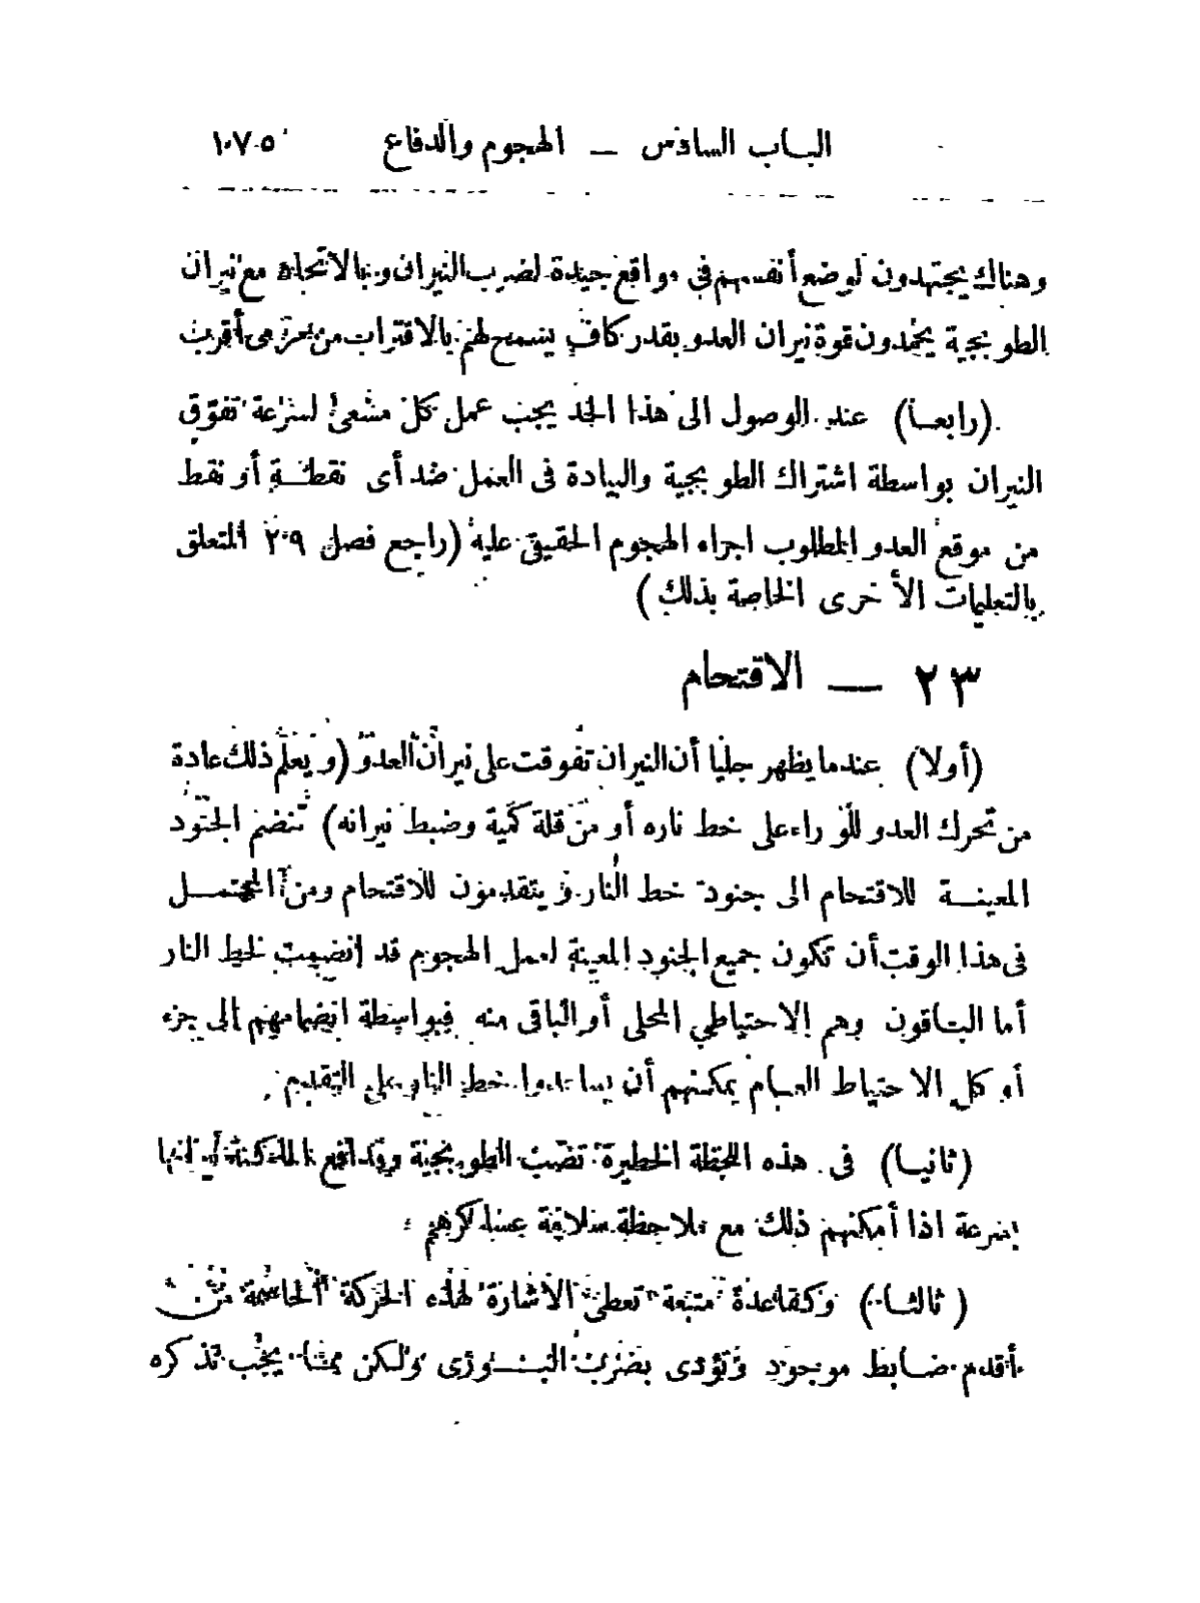 الباب السادس — الهجوم والدفاع ١٠٧٥
وهناك يجتهدون لوضع أنفسهم فى مواقع جيدة لضرب النيران وبالاتحاد مع نيران
الطوبجية يخمدون قوة نيران العدو بقدر كاف يسمح لهم بالاقتراب من مرمى أقرب
(رابعا) عند الوصول الى هذا الحد يجب عمل كل مسعى لسرعة تفوّق
النيران بواسطة اشتراك الطوبجية والبيادة فى العمل ضد أى نقطة أو نقط
من موقع العدو المطلوب اجراء الهجوم الحقيقى عليه (راجع فصل ٢٠٩ المتعلق
بالتعليمات الأخرى الخاصة بذلك)
٢٣ — الاقتحام
(أولا) عندما يظهر جليا أن النيران تفوقت على نيران العدو (ويعلم ذلك عادة
من تحرك العدو للوراء على خط ناره أو من قلة كمية وضبط نيرانه) تنضم الجنود
المعينة للاقتحام الى جنود خط النار ويتقدمون للاقتحام ومن المحتمل
فى هذا الوقت أن تكون جميع الجنود المعينة لعمل الهجوم قد انضمت لخط النار
أما الباقون وهم الاحتياطى المحلى أو الباقى منه فبواسطة انضمامهم الى جزء
أو كل الاحتياط العام يمكنهم أن يساعدوا خط النار على التقدم
(ثانيا) فى هذه اللحظة الخطيرة تضرب الطوبجية ومدافع الماكنة نيرانها
بسرعة اذا أمكنهم ذلك مع ملاحظة سلامة عساكرهم
(ثالثا) وكقاعدة متبعة تعطى الاشارة لهذه الحركة الحاسمة من
أقدم ضابط موجود وتؤدى بضرب البورى ولكن مما يجب تذكره